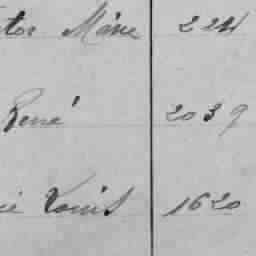 tor Marie 224
René 2039
ie Louis 1620